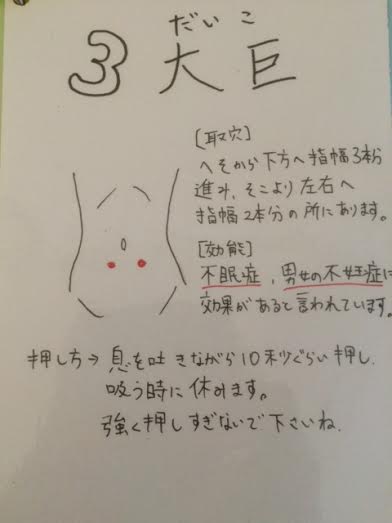 だいこ
3 大巨
[取穴]
へそから下方へ指幅3本分
進み、そこより左右へ
指幅2本分の所にあります。
[効能]
不眠症、男女の不妊症に
効果があると言われています。
押し方→息を吐きながら10秒ぐらい押し、
吸う時に休みます。
強く押しすぎないで下さいね。